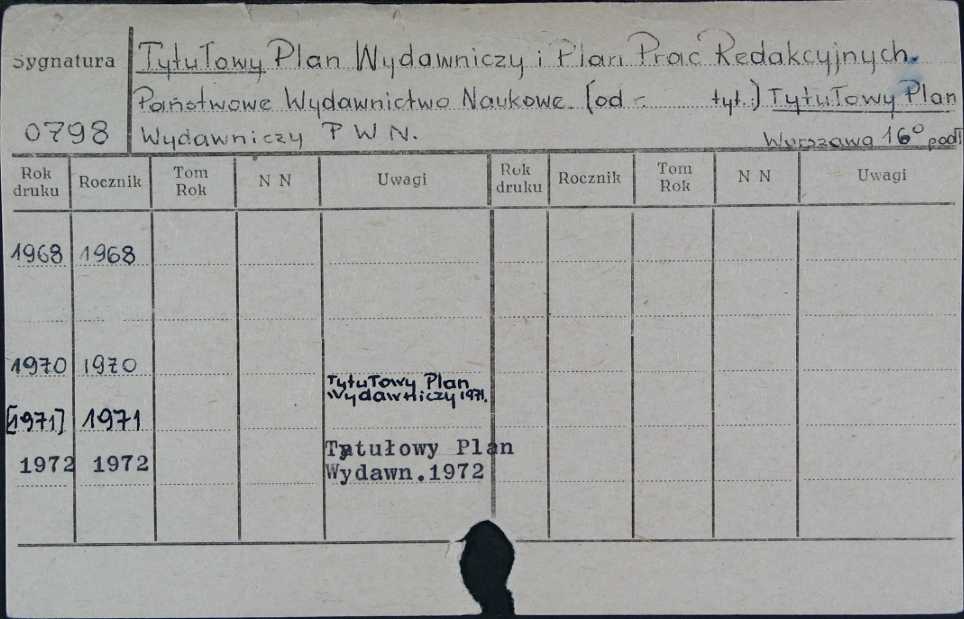 Sygnatura
0798
Tytułowy Plan Wydawniczy i Plan Prac Redakcyjnych.
Państwowe Wydawnictwo Naukowe. [od - tyt.:] Tytułowy Plan
Wydawniczy P W N. Warszawa 16° podł
Rok druku Rocznik Tom Rok N N Uwagi Rok druku Rocznik Tom Rok N N Uwagi
1968 1968
1970 1970
[1971] 1971 Tytułowy Plan
Wydawniczy 1971.
1972 1972 Tytułowy Plan
Wydawn.1972